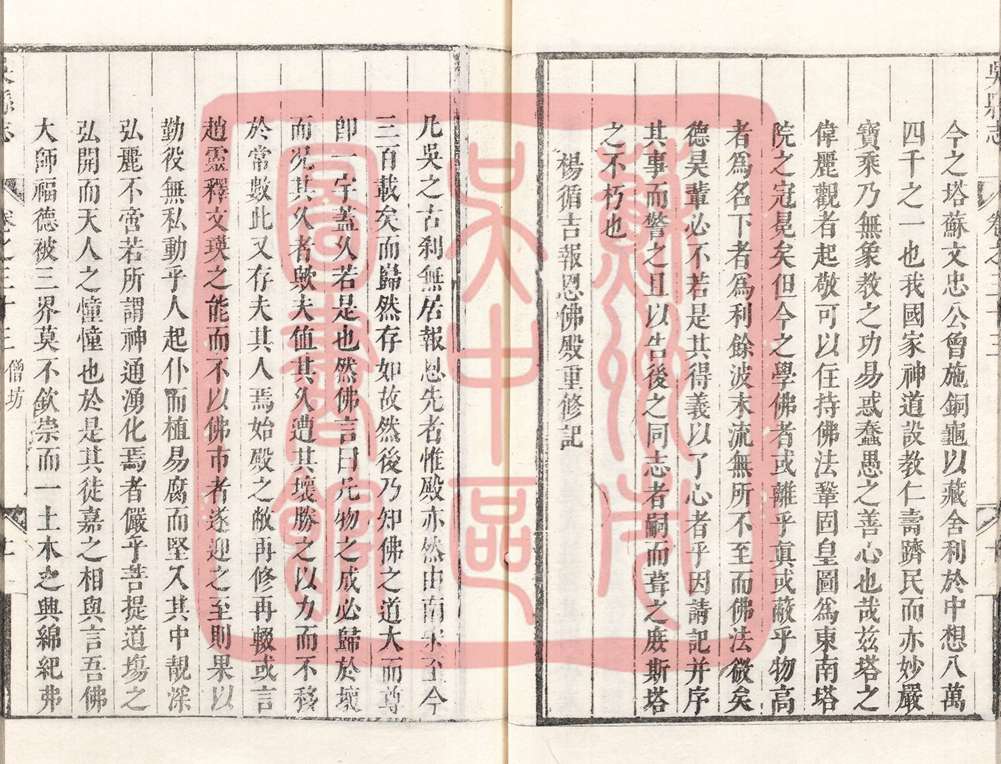 今之塔蘇文忠公曾施銅龜以藏舍利於中想八萬
四千之一也我國家神道設教仁壽躋民而亦妙嚴
寶乘乃無象教之功易惑蠢愚之善心也哉茲塔之
偉麗觀者起敬可以住持佛法鞏固皇圖為東南塔
院之冠冕矣但今之學佛者或離乎真或蔽乎物高
者為名下者為利餘波末流無所不至而佛法微矣
德昊輩必不若是其得義以了心者乎因請記并序
其事而警之且以告後之同志者嗣而葺之庶斯塔
之不朽也
楊循吉報恩佛殿重修記
凡吳之古刹無居報恩先者惟殿亦然由南宋至今
三百載矣而歸然存如故然後乃知佛之道大而尊
即一宇蓋久若是也然佛言曰凡物之成必歸於壞
而况其久者歟夫值其久遭其壞勝之以力而不移
於常數此又存夫其人焉始殿之敝再修再輟或言
趙靈釋文瑛之能而不以佛市者遂迎之至則果以
勤役無私動乎人起仆而植易腐而堅入其中靚深
弘麗不啻若所謂神通湧化焉者儼乎菩提道塲之
弘開而天人之憧憧也於是其徒嘉之相與言吾佛
大師福德被三界莫不欽崇而一土木之興綿紀弗
吳縣志
卷之三十三
僧坊
蘇州市
吳中區
圖書館